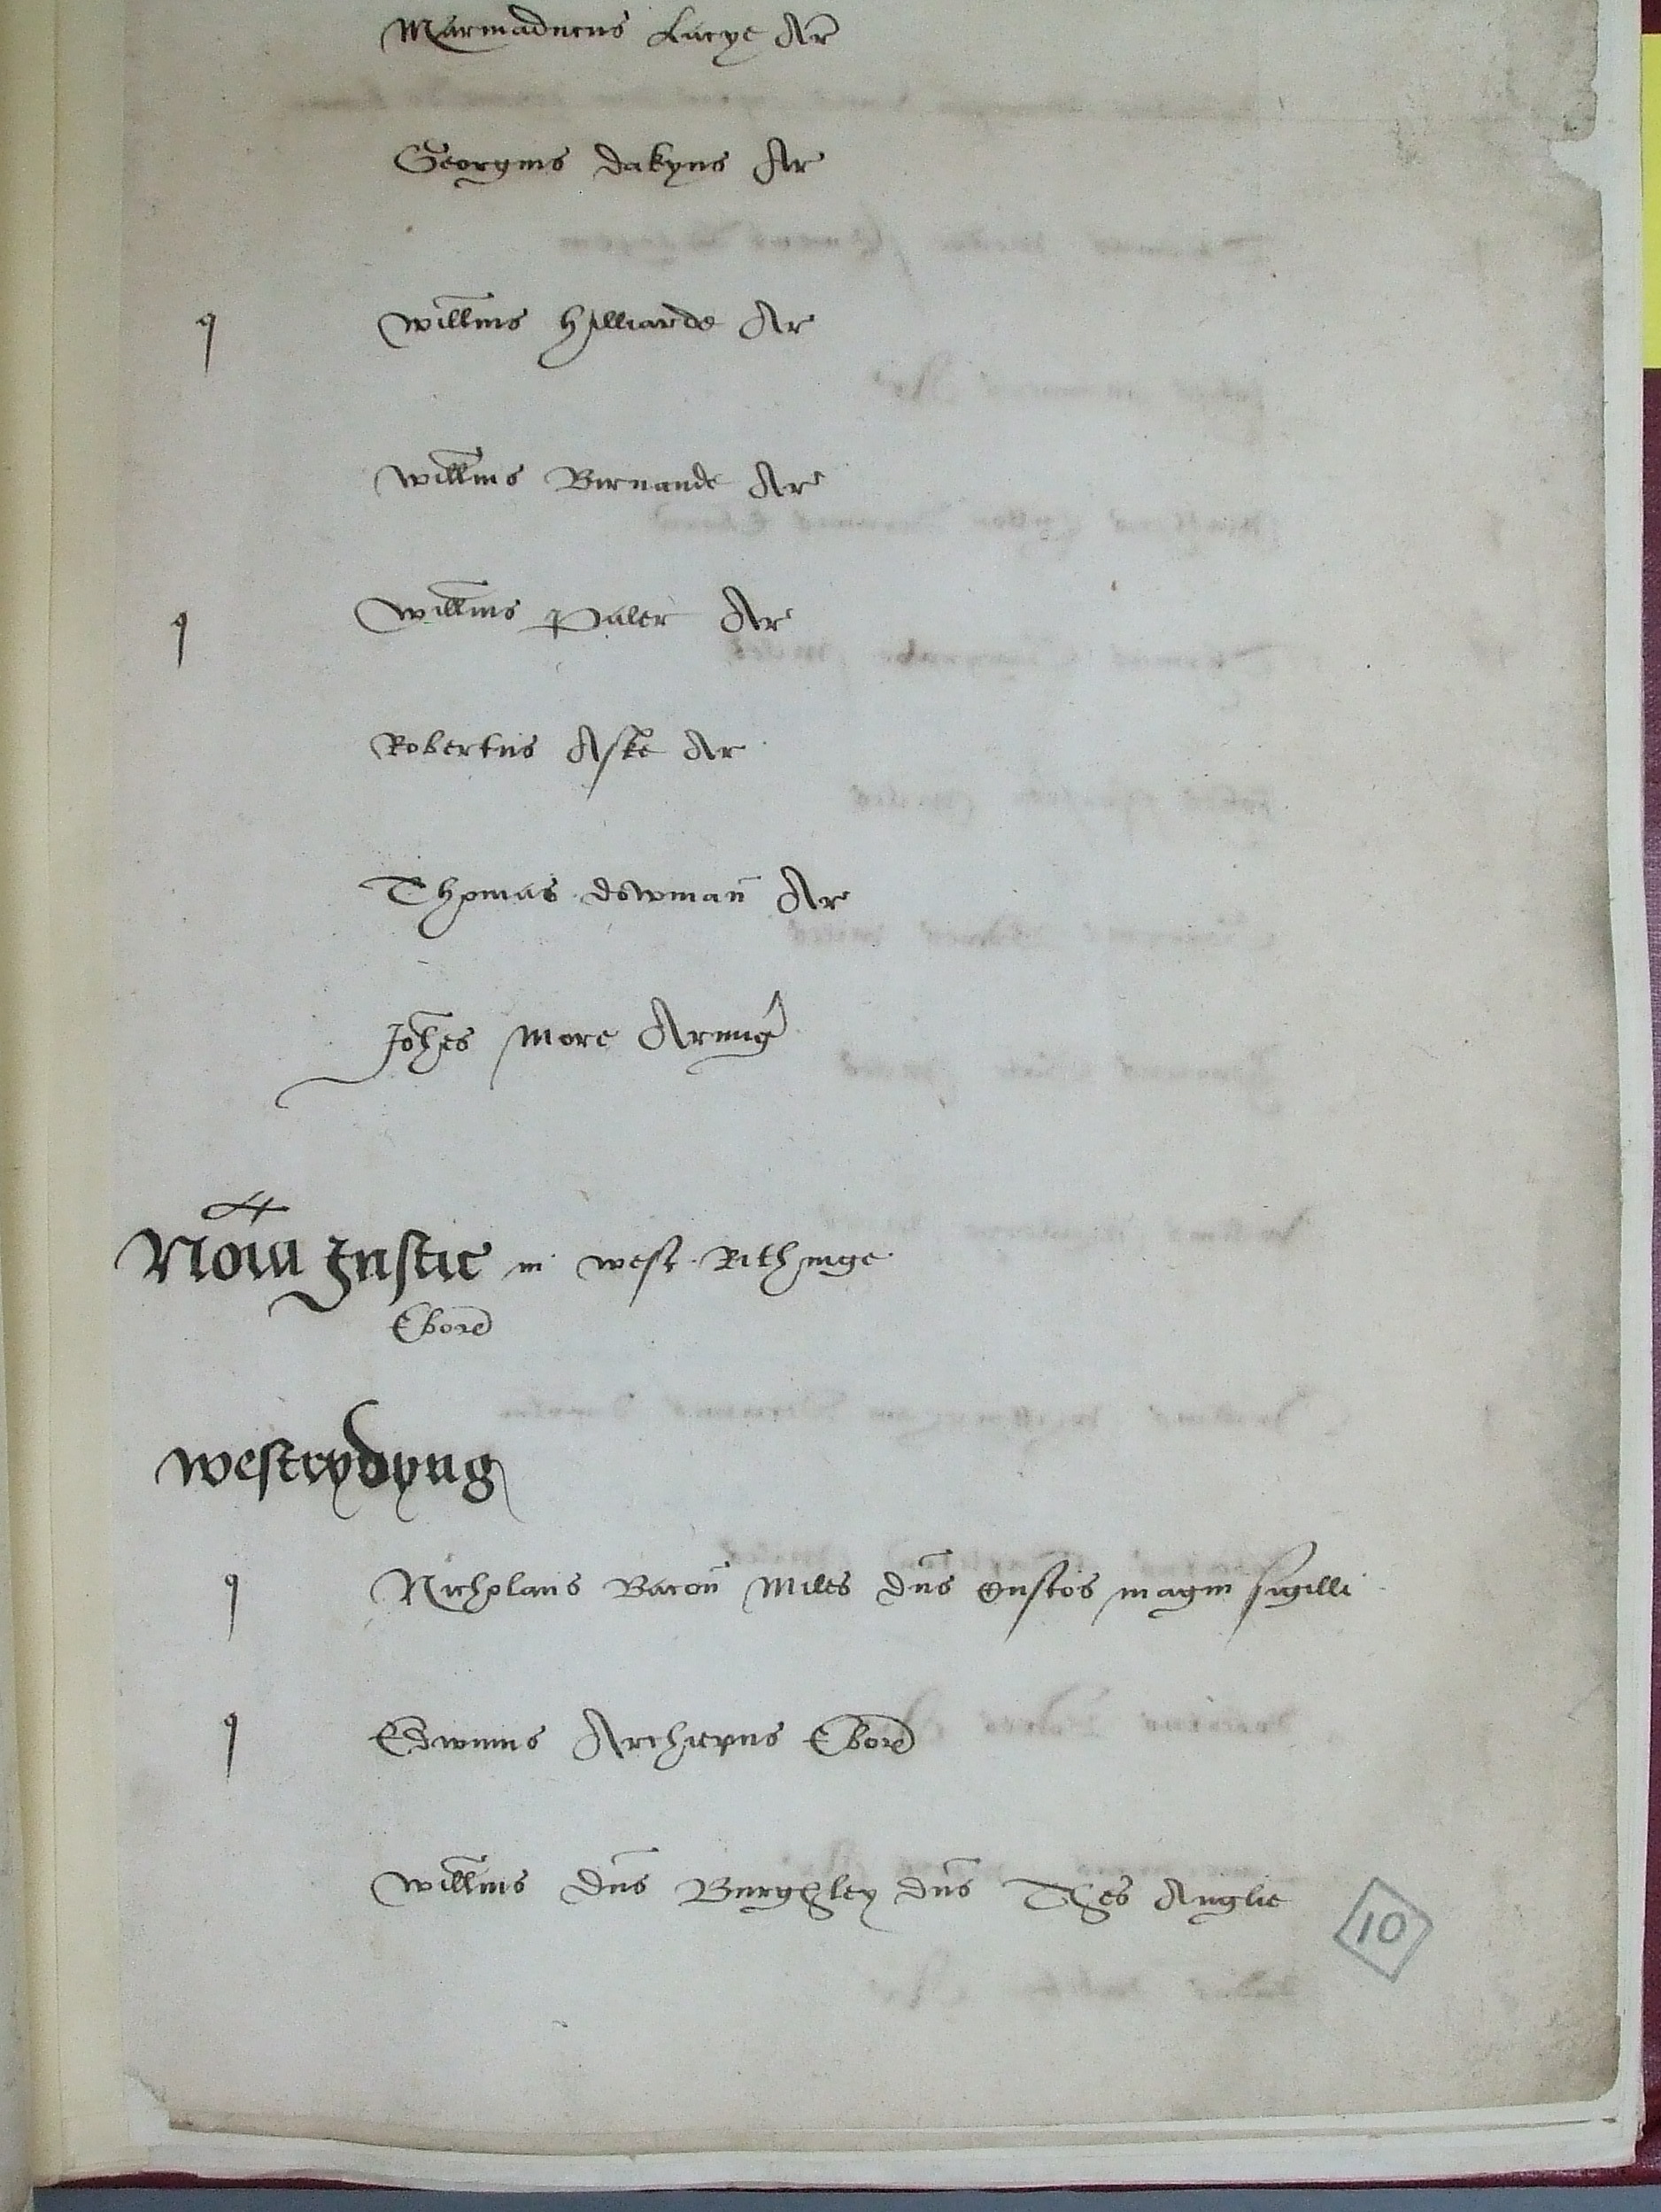 Marmaducus Lacye Ar
Georgius dakyns Ar
q Willms Hilliarde Ar
Willms Birnande Ar
q Willms Paler Ar
Robertus Aske Ar
Thomas dowman Ar
Johes More Armig
Noia Justic in west Rithinge
Ebor
westrydyng
q Nicholaus Bacon Miles dns Custos magni sigilli
q Edwinus Archiepus Ebor
Willms dns Burghley dns Thes Anglie
10